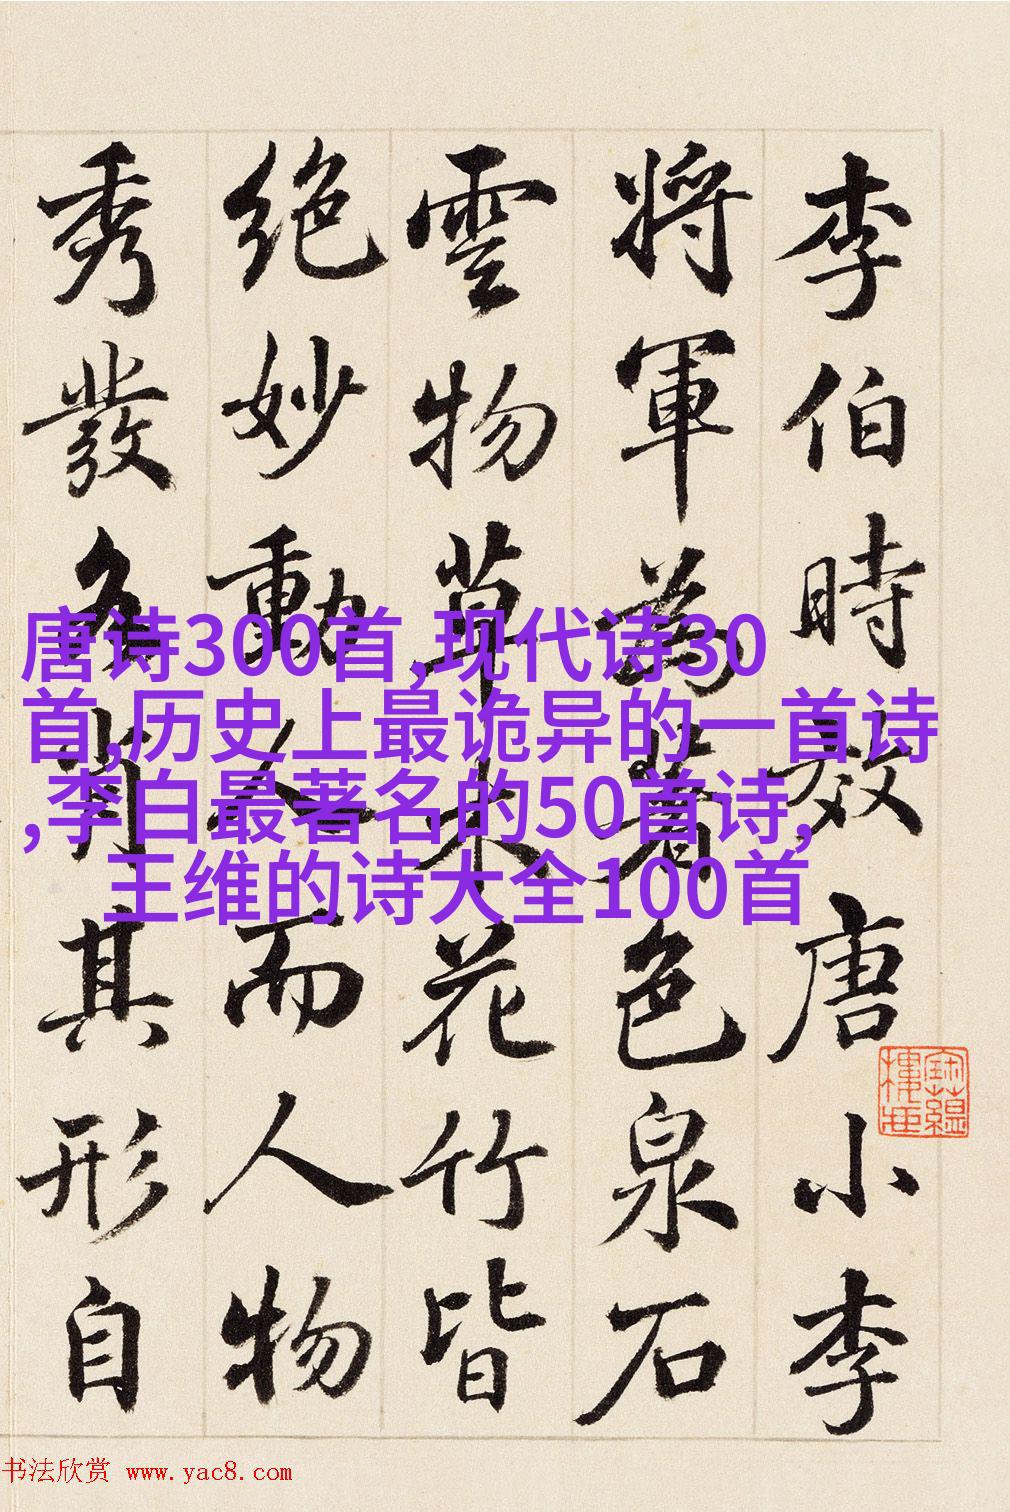 李伯時效唐小李
將軍為著色泉石
雲物草木花竹皆
絕妙動人而人物
秀發各肖其形自
唐诗300首,现代诗30
首,历史上最诡异的一首诗
,李白最著名的50首诗,
王维的诗大全100首
书法欣赏 www.yac8.com